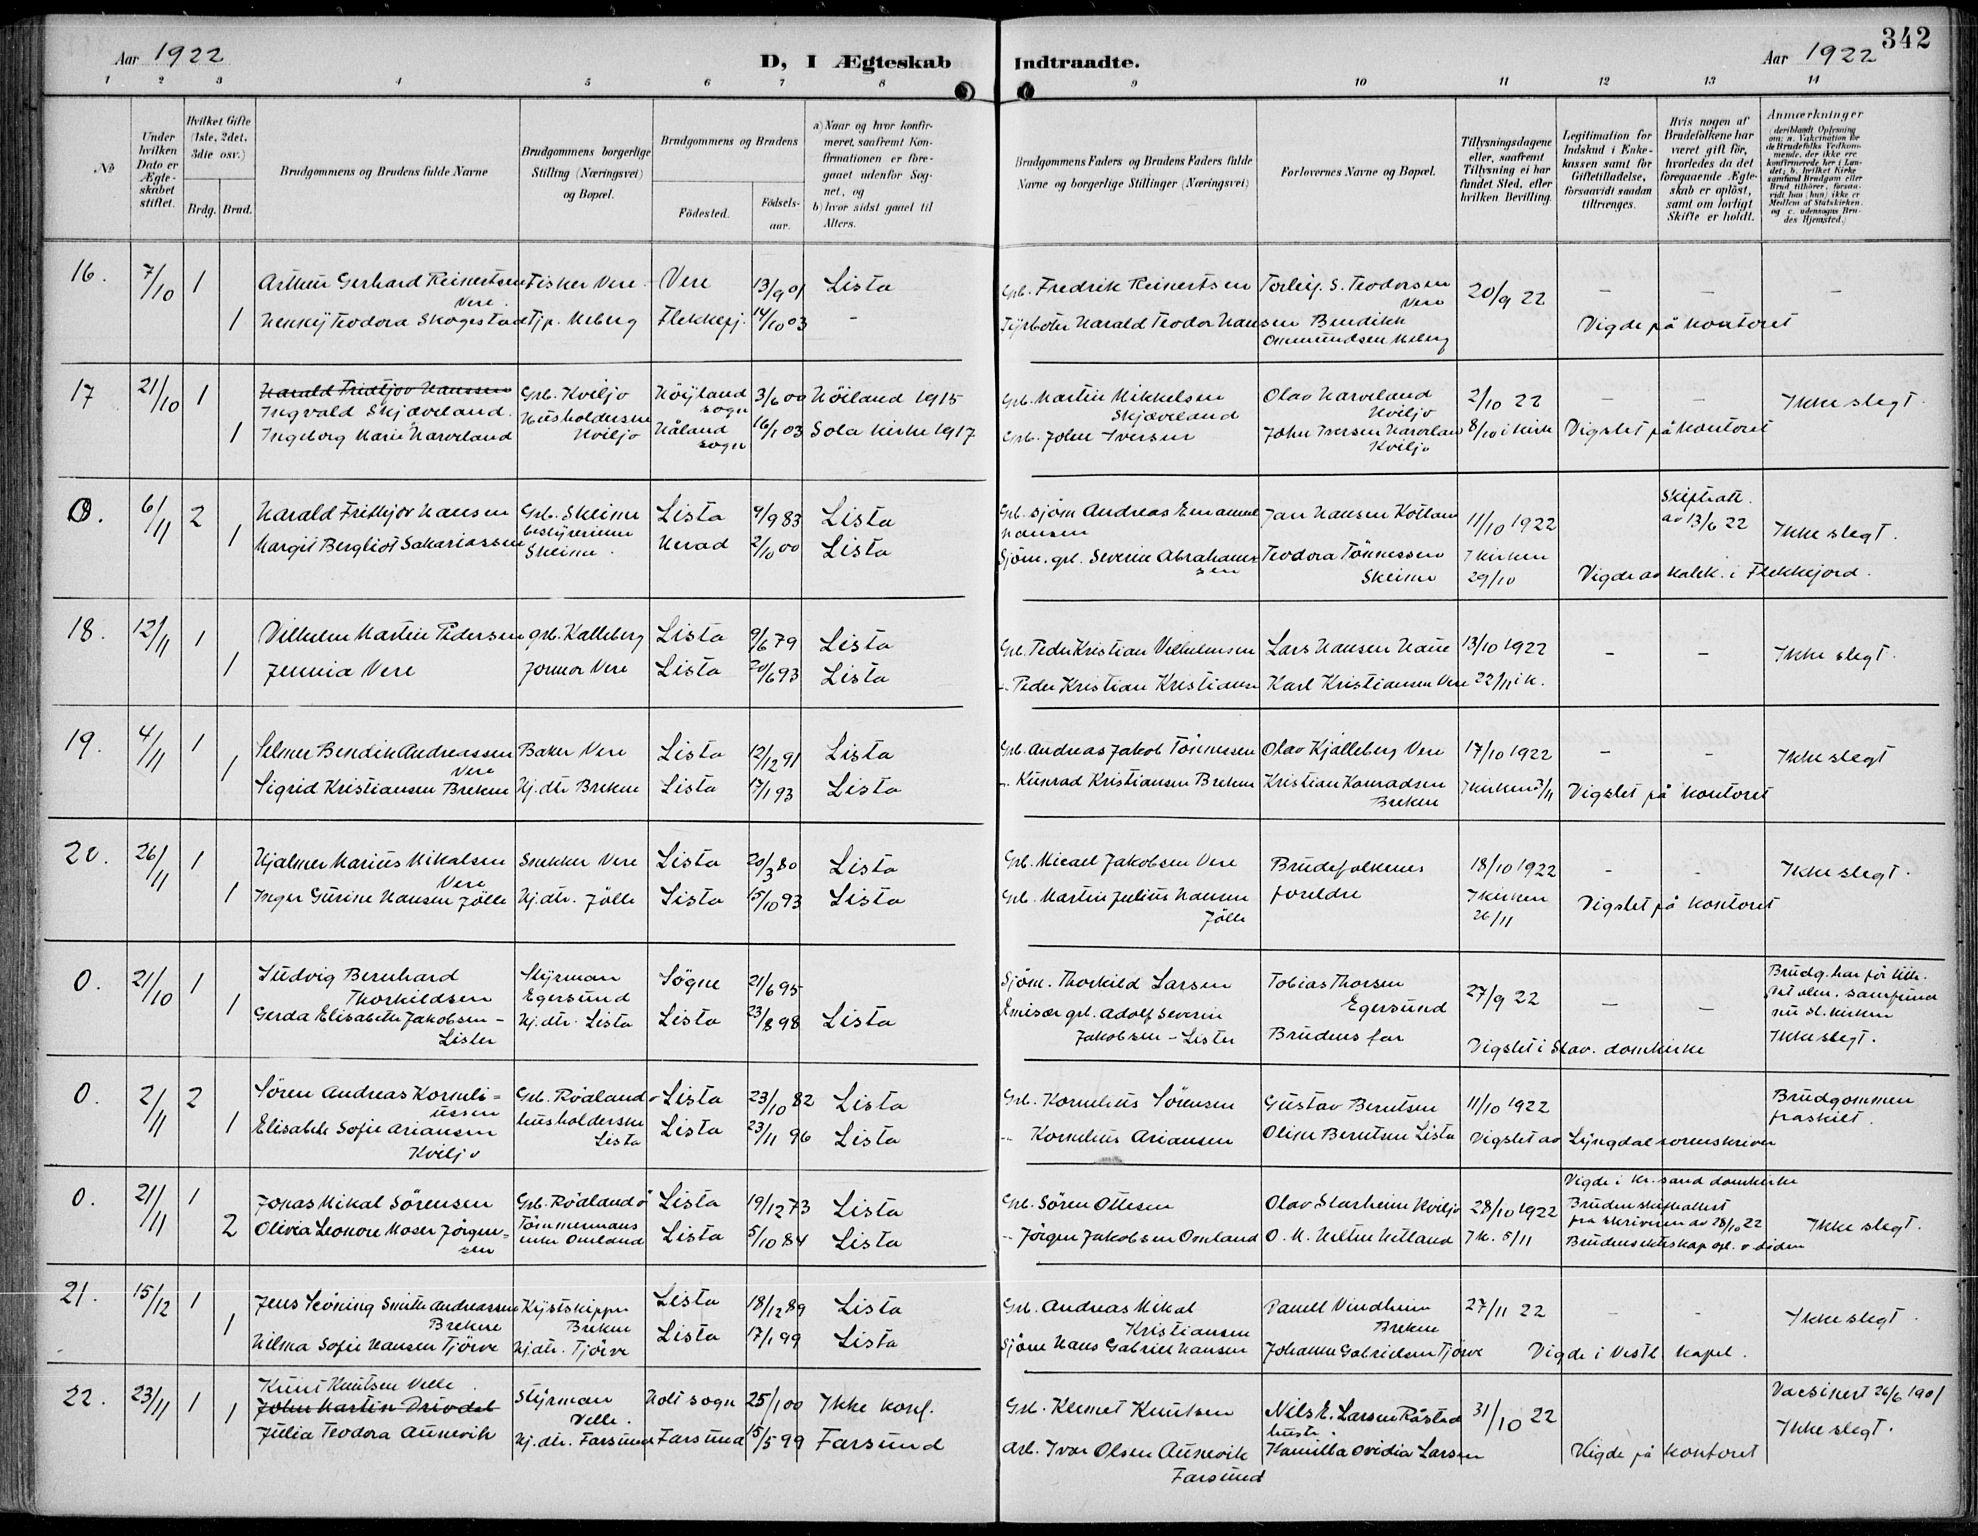 Aar 1922
D, I Ægteskab Indtraadte.
Aar 1922
342
1 2 3 4 5 6 7 8 9 10 11 12 13 14
No
Under hvilken Dato er Ægteskabet stiftet.
Hvilket Gifte (1ste, 2det, 3die osv.)
Brdg. Brud.
Brudgommens og Brudens fulde Navne
Brudgommens borgerlige Stilling (Næringsvei) og Bopæl.
Brudgommens og Brudens
Födested.
Födselsaar.
a) Naar og hvor konfirmeret, saafremt Konfirmationen er foregaaet udenfor Sognet, og
b) hvor sidst gaaet til Alters.
Brudgommens Faders og Brudens Faders fulde Navne og borgerlige Stillinger (Næringsvei)
Forlovernes Navne og Bopæl.
Tillysningsdagene eller, saafremt Tillysning ei har fundet Sted, efter hvilken Bevilling.
Legitimation for Indskud i Enkekassen samt for Giftetilladelse, forsaavidt saadan tiltrænges.
Hvis nogen af Brudefolkene har været gift før, hvorledes da det foregaaende Ægteskab er oplöst, samt om lovligt Skifte er holdt.
Anmærkninger (deriblandt Oplysning om: a. Vakcination for de Brudefolks Vedkommende, der ikke ere konfirmerede her i Landet; b. hvilket Kirkesamfund Brudgom eller Brud tilhörer, forsaavidt han (hun) ikke er Medlem af Statskirken, og c. udensogns Brudes Hjemsted.)
16. 7/10 1 Arthur Gerhard Reinertsen Fisker Vere Vere 13/9 01 Lista Grb. Fredrik Reinertsen Torleif. S. Teodorsen 20/9 22 – – –
Vere. Vere
1 Henny Teodora Skogestad Tjp. Meberg Flekkefj. 14/10 03 – Fyrbøter Harald Teodor Hansen Bendikk Vigde på kontoret
Ommundsen Meberg
17 21/10 1 Harald Fridtjov Hanssen Grb. Kviljo Höiland sogn 3/6 00 Höiland 1915 Grb. Martin Mikkelsen Olav Harveland 2/10 22 – – Ikke slegt.
Ingvald Skjæveland. Husholderske Skjæveland Kviljo
1 Ingeborg Marie Harveland Kviljo Håland sogn 16/1 03 Sola kirke 1917 Grb. John Iversen John Iversen Harveland 8/10 i kirk Vigslet på kontoret
Kviljo
0. 6/11 2 Harald Frithjov Hansen Grb. Skeime Lista 9/9 83 Lista Grb. sjöm Andreas Emanuel Jan Hansen Kolland 11/10 1922 Skifteatt. av 13/6 22 Ikke slegt.
bestyrerinne Hansen
1 Margit Bergliot Sakariassen Skeime. Herad 2/10 00 Lista Sjöm. grb. Severin Abrahamssen Teodora Tönnessen I kirken
Skeime 29/10 Vigde av kalek. i Flekkefjord.
18. 12/11 1 Vilhelm Martin Pedersen grb. Kalleberg Lista 9/6 79 Lista Grb. Peder Kristian Vilhelmsen Lars Hansen Haue 13/10 1922 – – Ikke slegt.
1 Jennia Vere Jormor Vere Lista 20/6 93 Lista – Peder Kristian Kristiansen Karl Kristiansen Vere 22/11 i k.
19. 4/11 1 Selmer Bendik Andreassen Baker Vere Lista 12/12 91 Lista Grb. Andreas Jakob Tönnessen Olav Kjälleberg Vere 17/10 1922 – – Ikke slegt
Vere
1 Sigrid Kristiansen Brekne Hj.dtr Brekne Lista 17/1 93 Lista – Kunrad Kristiansen Brekne Kristian Konradsen I kirken 5/11 Vigslet på kontoret
Brekne
20. 26/11 1 Hjalmer Marius Mikalsen Snekker Vere Lista 20/3 80 Lista Grb. Micael Jakobsen Vere Brudefolkenes 18/10 1922 – – Ikke slegt.
Vere
1 Inger Gurine Hansen Jölle Hj.dtr. Jölle Lista 15/10 93 Lista Grb. Martin Julius Hansen foreldre I kirken Vigslet på kontoret
Jölle 26/11
0. 21/10 1 Ludvig Bernhard Styrman Sögne 21/6 95 Sjöm. Thorkild Larsen Tobias Thorsen 27/9 22 – – Brudg. har för tilh.
Thorkildsen Egersund Egersund samfund
1 Gerda Elisabeth Jakobsen – Hj.dtr. Lista Lista 23/8 98 Lista Emisær grb. Adolf Severin nu st. kirken
Lister Jakobsen – Lister Brudens far Vigslet i Stav. domkirke Ikke slegt.
0. 2/11 2 Sören Andreas Korneli=ussen Grb. Rødland Lista 23/10 82 Lista Grb. Kornelius Sörensen Gustav Berntsen 11/10 1922 Brudgommen
husholderske fraskilt.
1 Elisabeth Sofie Ariansen Lista Lista 23/11 96 Lista – Kornelius Ariansen Oline Berntsen Lista Vigslet av Lyngdal sorenskriver
Kviljo
0. 21/11 1 Jonas Mikal Sörensen Grb. Rödland Lista 19/12 73 Lista Grb. Sören Ottesen Olav Starheim Kviljo 28/10 1922 Vigde i Kr.sand domkirke
Tömmermans Bruden skifteattest
2 Olivia Leonore Moser Jörgen=sen enke Omland Lista 5/10 84 Lista – Jörgen Jakobsen Omland O. M. Hetland I k. 5/11 fra skriveren av 28/10 22 Ikke slegt.
Brudens ekteskap opl. v döden
21. 15/12 1 Jens Smith Andreassen Kystskipper Lista 18/12 89 Lista Grb. Andreas Mikal Vindheim 27/11 22 – – Ikke slegt.
Brekne Brekne Kristiansen Brekne
1 Hilma Sofie Hansen Tjörve Hj.dtr. Tjörve Lista 17/1 99 Lista Sjöm Hans Gabriel Hansen Johanne Gabrielsen Tjörve Vigde i Vestl. kapel.
22. 23/11 1 Knut Knutsen Velle. Styrman Holt sogn 25/1 00 Ikke konf. Grb. Klemet Knutsen Nils E. Larsen Råstad 31/10 22 Vacsinert 26/6 1901
John Martin Drivdal Velle. Ikke slegt.
1 Julia Teodora Aunevik Hj.dtr. Farsund Farsund 15/5 99 Farsund Arb. Ivar Olsen Aunevik Kamilla Ovidia Larsen Vigde på kontoret
Farsund